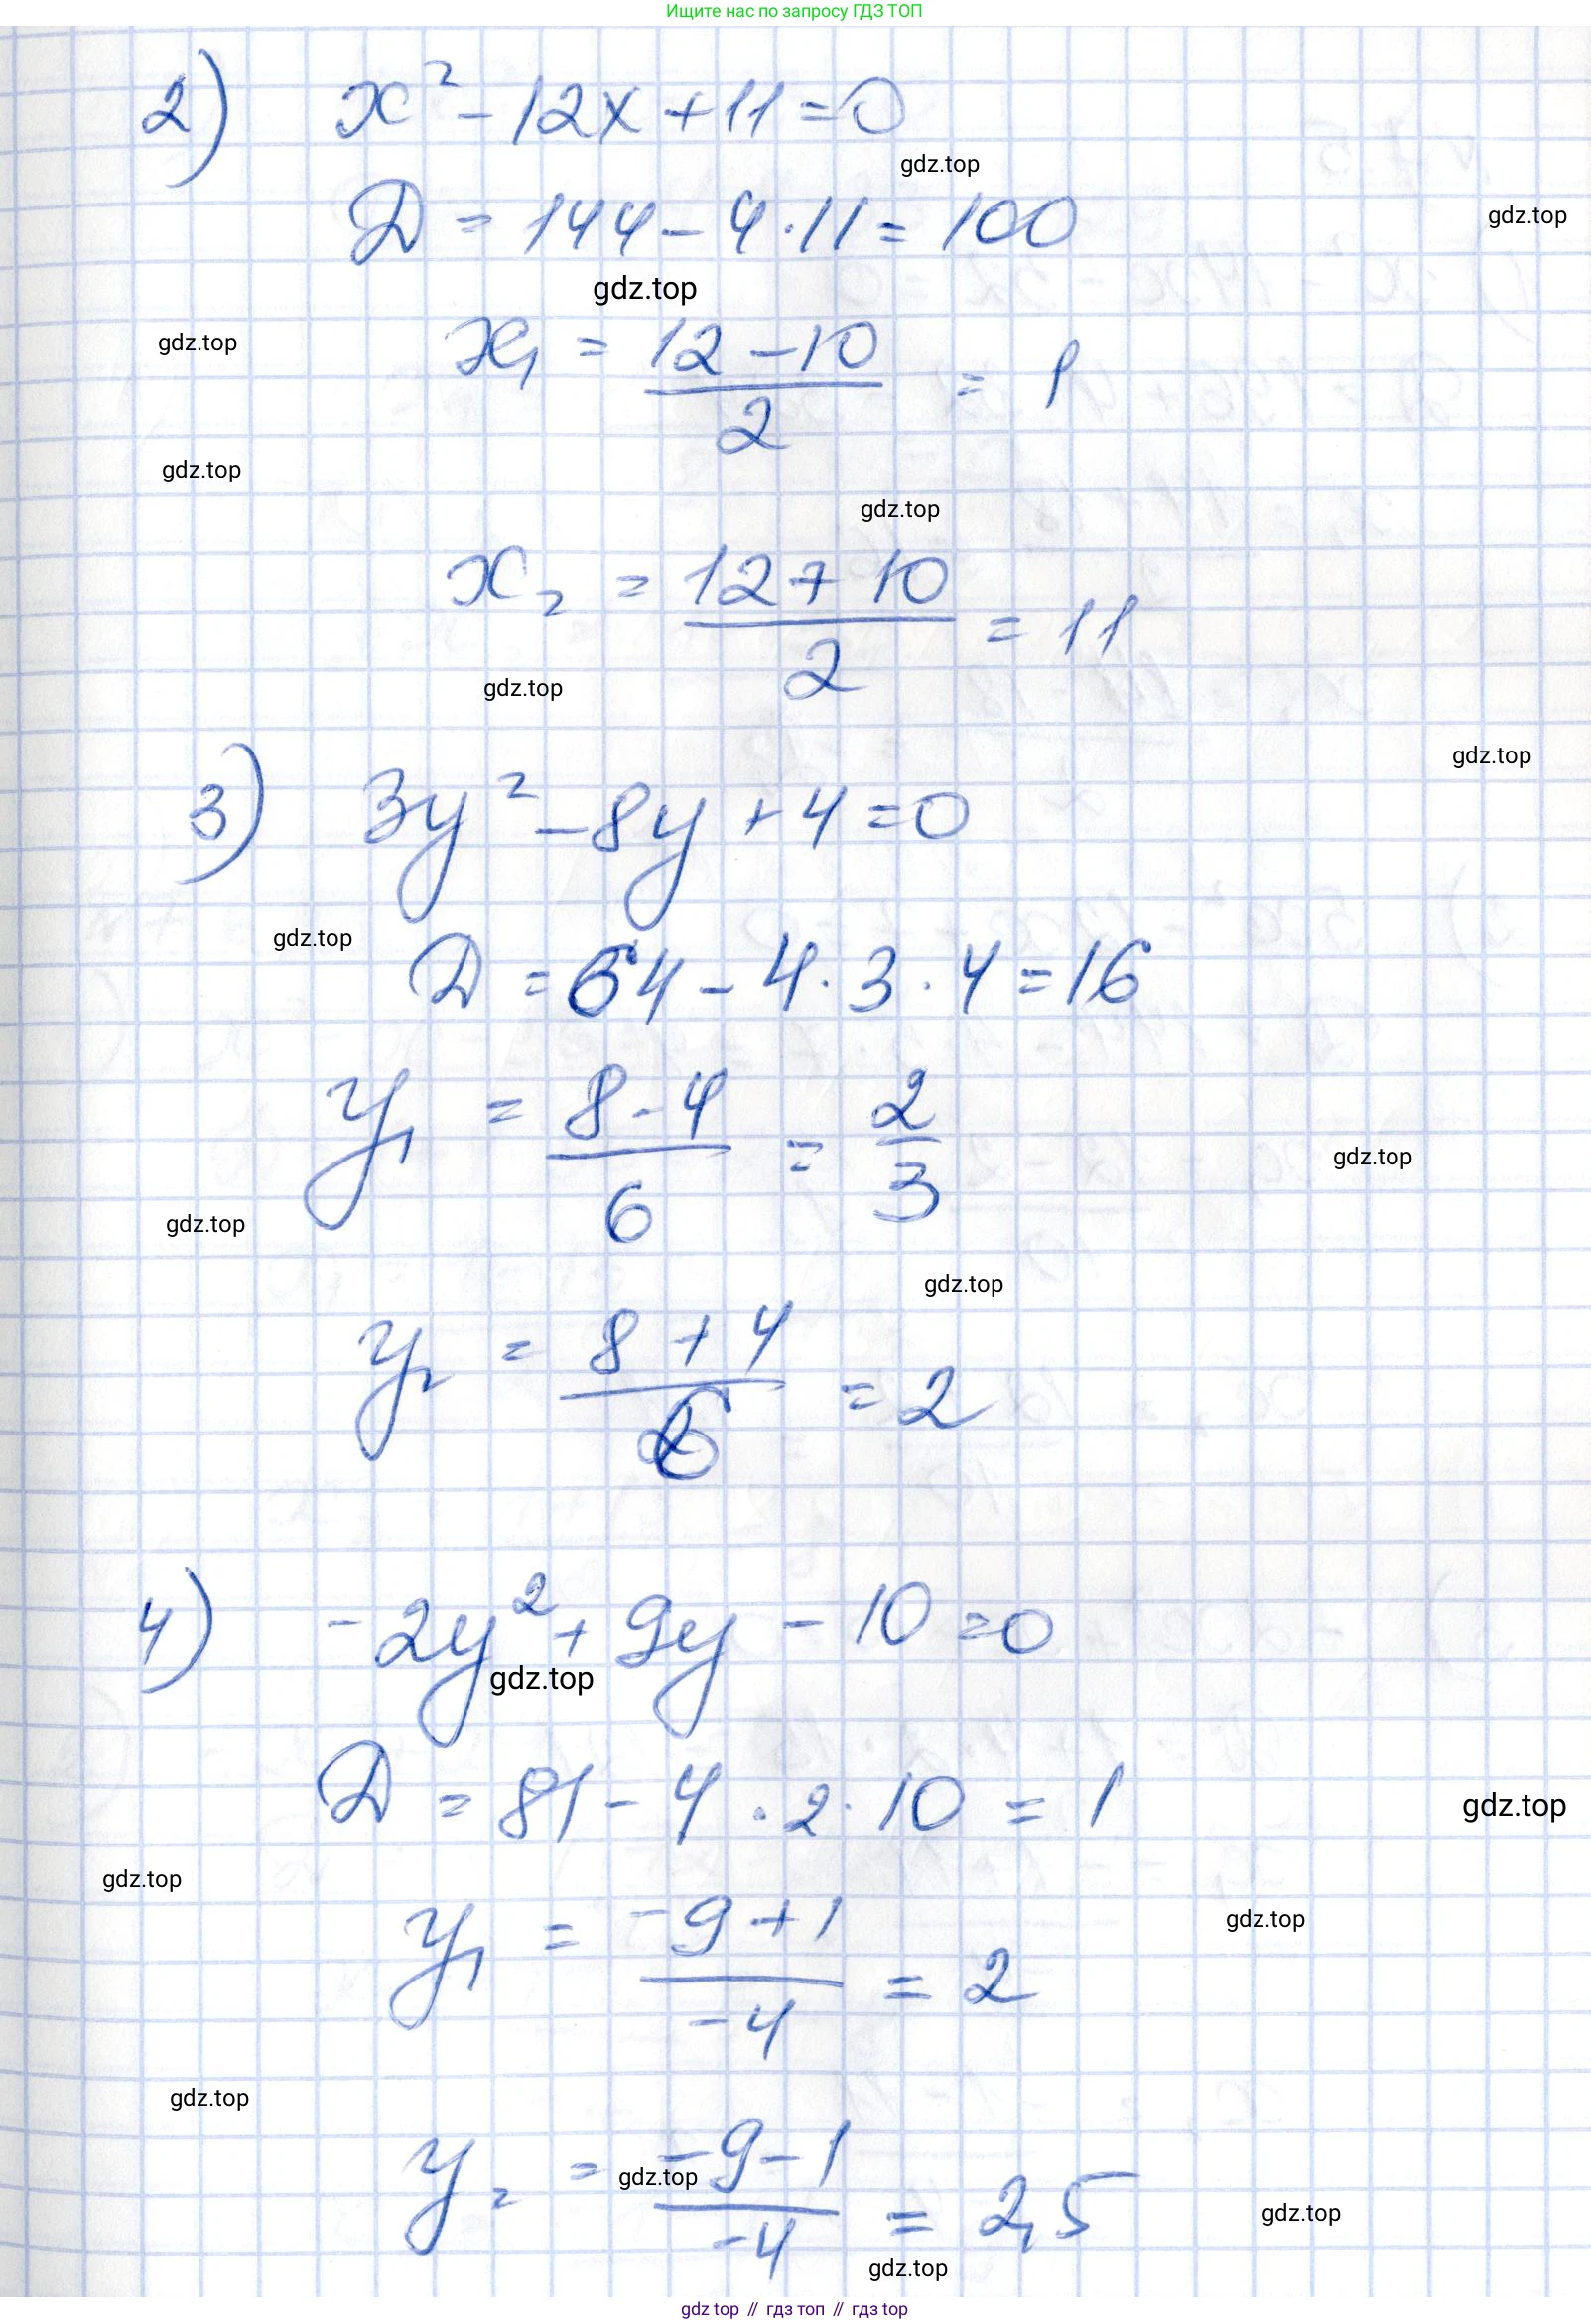 Ищите нас по запросу ГДЗ ТОП
2) x² - 12x + 11 = 0
gdz.top
D = 144 - 4 · 11 = 100
gdz.top
gdz.top
gdz.top
x₁ = (12 - 10)/2 = 1
gdz.top
gdz.top
x₂ = (12 + 10)/2 = 11
gdz.top
gdz.top
3) 3y² - 8y + 4 = 0
gdz.top
D = 64 - 4 · 3 · 4 = 16
y₁ = (8 - 4)/6 = 2/3
gdz.top
gdz.top
gdz.top
y₂ = (8 + 4)/6 = 2
4) -2y² + 9y - 10 = 0
gdz.top
D = 81 - 4 · 2 · 10 = 1
gdz.top
gdz.top
gdz.top
y₁ = (-9 + 1)/-4 = 2
gdz.top
y₂ = (-9 - 1)/-4 = 2,5
gdz.top
gdz.top
gdz.top
gdz top // гдз топ // гдз top